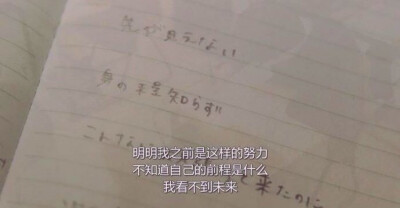 先が見えない
身の程知らず
こんな て来たのに
明明我之前是这样的努力
不知道自己的前程是什么
我看不到未来